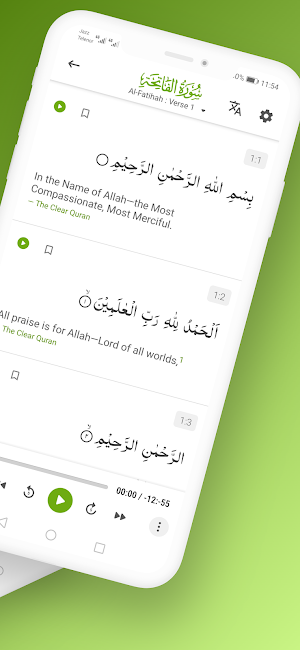 Jazz
Telenor
.0%
11:54
سُورَةُ الْفَاتِحَةِ
Al-Fatihah : Verse 1
1:1
بِسْمِ اللّٰهِ الرَّحْمٰنِ الرَّحِيْمِ
In the Name of Allah—the Most
Compassionate, Most Merciful.
— The Clear Quran
1:2
اَلْحَمْدُ لِلّٰهِ رَبِّ الْعٰلَمِيْنَ ۙ ١
All praise is for Allah—Lord of all worlds,1
The Clear Quran
1:3
الرَّحْمٰنِ الرَّحِيْمِ ۙ ٢
00:00 / -12:-55
5